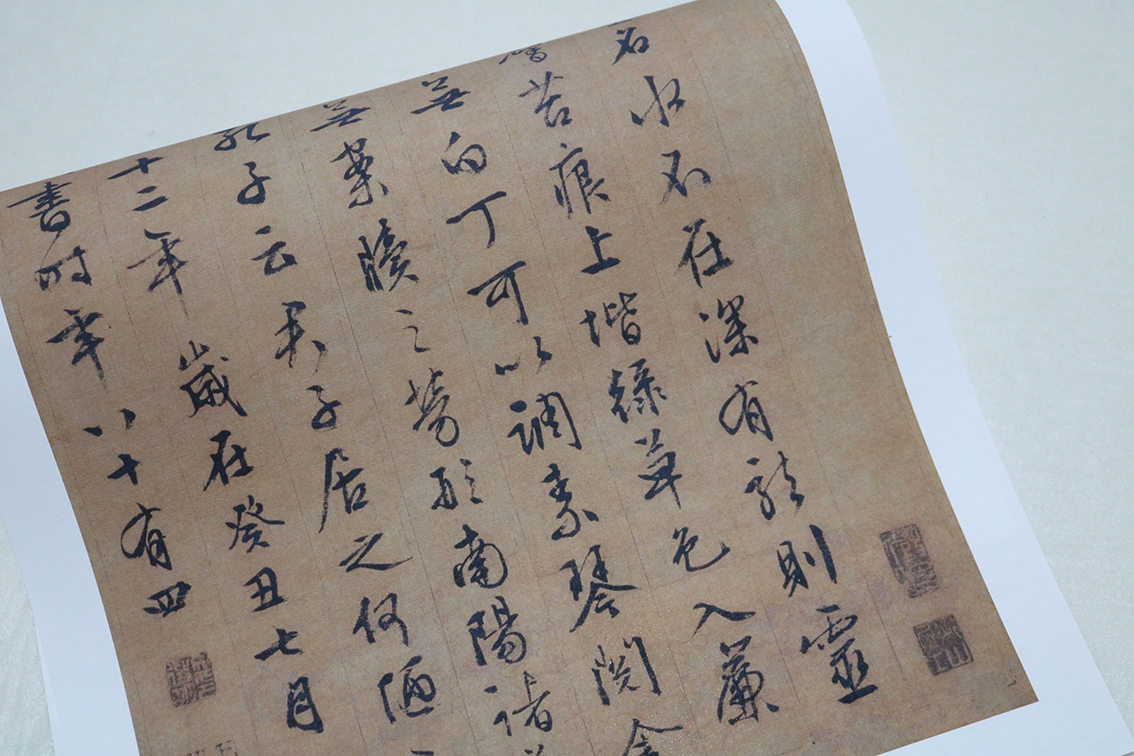 名水不在深有龍則靈
苔痕上堦綠草色入簾
無白丁可以調素琴閱金
無案牘之勞形南陽諸
孔子云君子居之何陋
十二年歲在癸丑七月
書時年八十有四